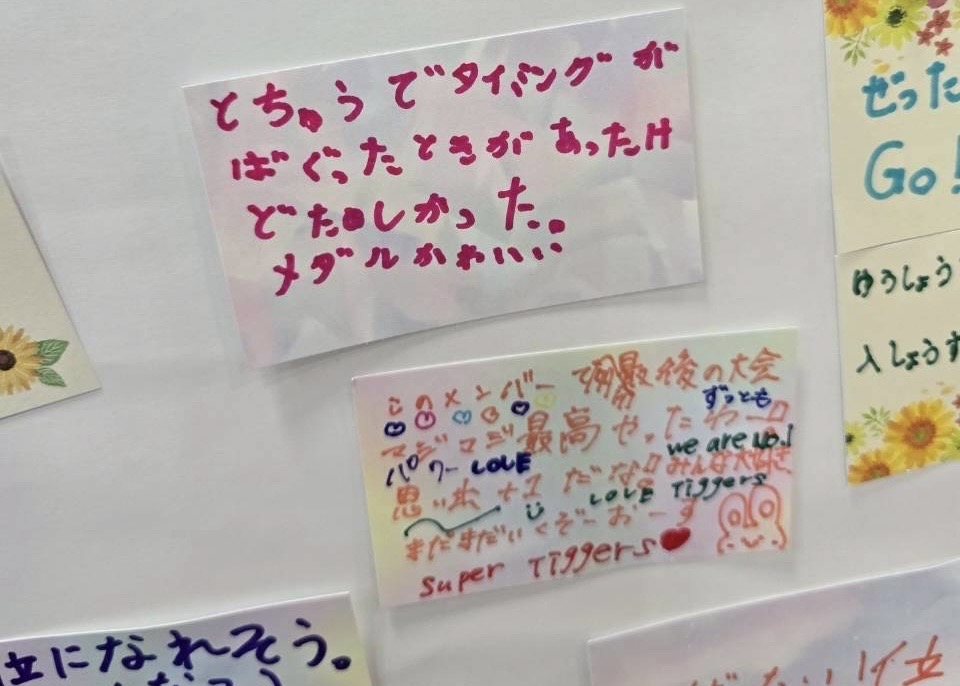 とちゅうでタイミングが
ばぐったときがあったけ
どたのしかった。
メダルかわいい
ぜった
Go!
ゆうしょう
入しょうす
このメンバーで 最後の大会
ずっとも
マジマジ最高やったわー
we are No.1
パワー LOVE
みんな大好き
思い出+1 だな
LOVE Tiggers
まだまだいくぞーおーす
super Tiggers
位になれそう。